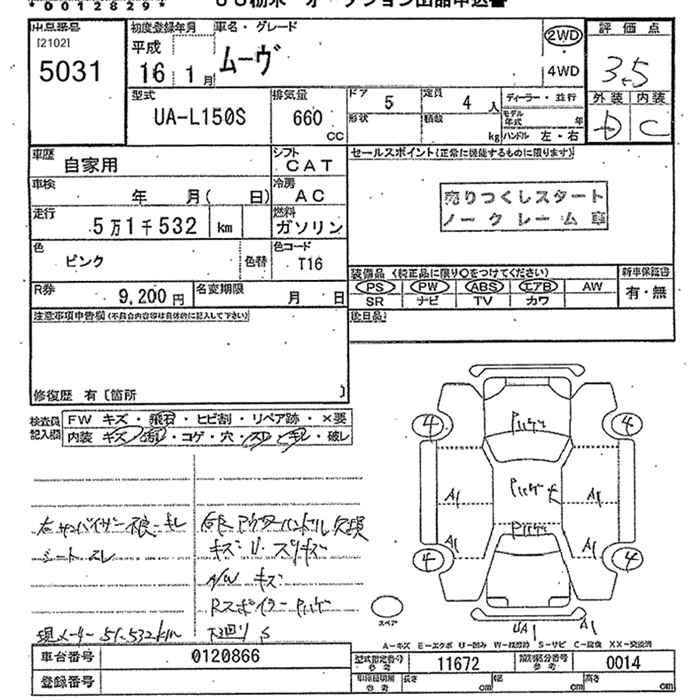 *00128291*
出品番号 初度登録年月 車名・グレード 2WD 評価点
[2102] 平成 ムーヴ
5031 16 1月 4WD 3.5
型式 排気量 ドア 5 定員 4 人 ディーラー・並行 外装 内装
UA-L150S 660 CC 形状 積数 kg モデル年式 年 D C
ハンドル 左・右
車歴 自家用 シフト CAT セールスポイント(正常に機能するものに限ります)
車検 年 月( 日) 冷房 AC 売りつくしスタート
走行 5万1千532 km 燃料 ガソリン ノークレーム車
色 ピンク 色替 色コード T16
装備品 (純正品に限り○をつけてください) 新車保証書
R券 9,200円 名変期限 月 日 PS PW ABS エアB AW 有・無
SR ナビ TV カワ
注意事項申告欄(不具合内容等は具体的に記入して下さい) 後日品
修復歴 有〔箇所 〕
検査員記入欄 FW キズ・飛石・ヒビ割・リペア跡・×要
内装 キズ・汚れ・コゲ・穴・スレ・キレ・破レ
4 4
A1 A1
A1 A1
4 4
シートスレ キズ・U・スリキズ
A/W キズ
Rスポイラー ハゲ
現メーター 51,532km 下廻り S
スペア UA1 A1
A-キズ E-エクボ U-凹み W-板跡 S-サビ C-腐食 XX-交換済
車台番号 0120866 型式指定番号 参考 11672 類別区分番号 参考 0014
登録番号 車体形状 参考 長さ cm 幅 cm 高さ cm